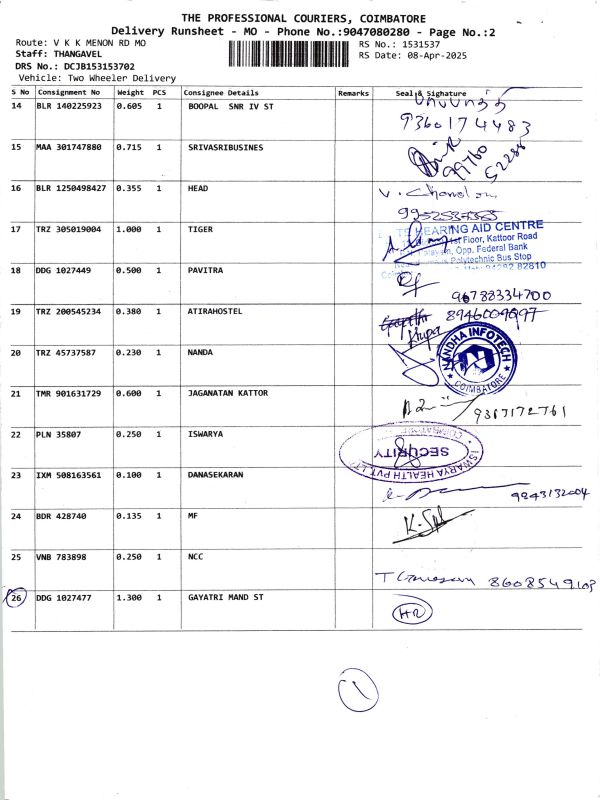 THE PROFESSIONAL COURIERS, COIMBATORE
Delivery Runsheet - MO - Phone No.:9047080280 - Page No.:2
Route: V K K MENON RD MO
RS No.: 1531537
Staff: THANGAVEL
RS Date: 08-Apr-2025
DRS No.: DCJB153153702
Vehicle: Two Wheeler Delivery
S No Consignment No Weight PCS Consignee Details Remarks Seal & Signature
14 BLR 140225923 0.605 1 BOOPAL SNR IV ST
9360174483
15 MAA 301747880 0.715 1 SRIVASRIBUSINES
99760
52288
16 BLR 1250498427 0.355 1 HEAD
V. Chandran
17 TRZ 305019004 1.000 1 TIGER
HEARING AID CENTRE
1st Floor, Kattoor Road
Opp. Federal Bank
Polytechnic Bus Stop
18 DDG 1027449 0.500 1 PAVITRA
96788334700
19 TRZ 200545234 0.380 1 ATIRAHOSTEL
8946009697
Krupa
20 TRZ 45737587 0.230 1 NANDA
NANDHA INFOTECH
COIMBATORE
21 TMR 901631729 0.600 1 JAGANATAN KATTOR
9367172761
22 PLN 35807 0.250 1 ISWARYA
ISWARYA HEALTH PVT. LTD
SECURITY
23 IXM 508163561 0.100 1 DANASEKARAN
9843132004
24 BDR 428740 0.135 1 MF
25 VNB 783898 0.250 1 NCC
8608549103
26 DDG 1027477 1.300 1 GAYATRI MAND ST
HR
1